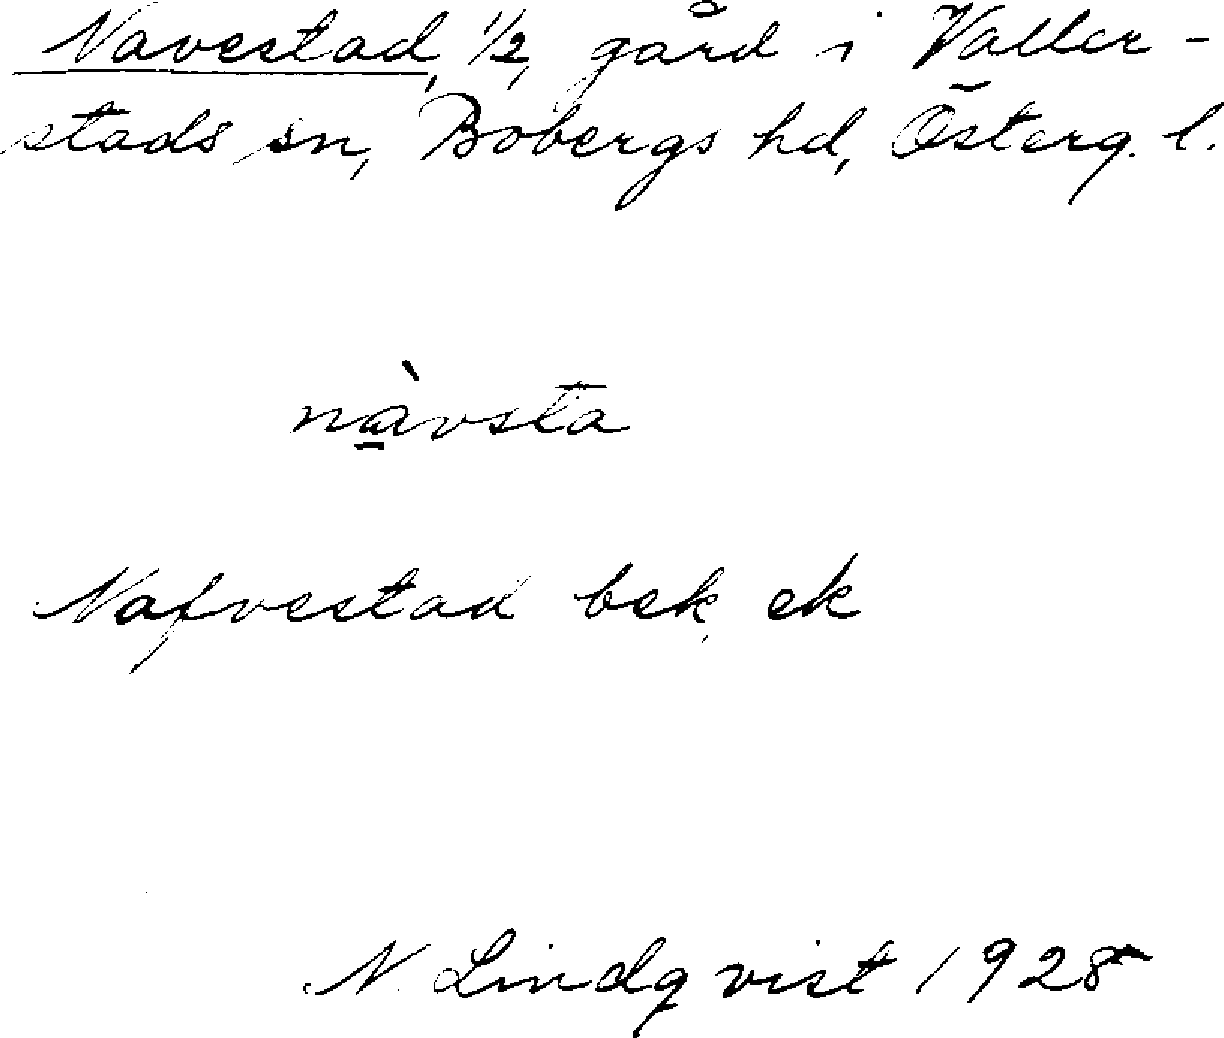 Navestad, 1/2, gård i Valler-
stads sn, Bobergs hd, Österg. l.
nàvsta
Nafvestad bek. ek
N. Lindqvist 1928